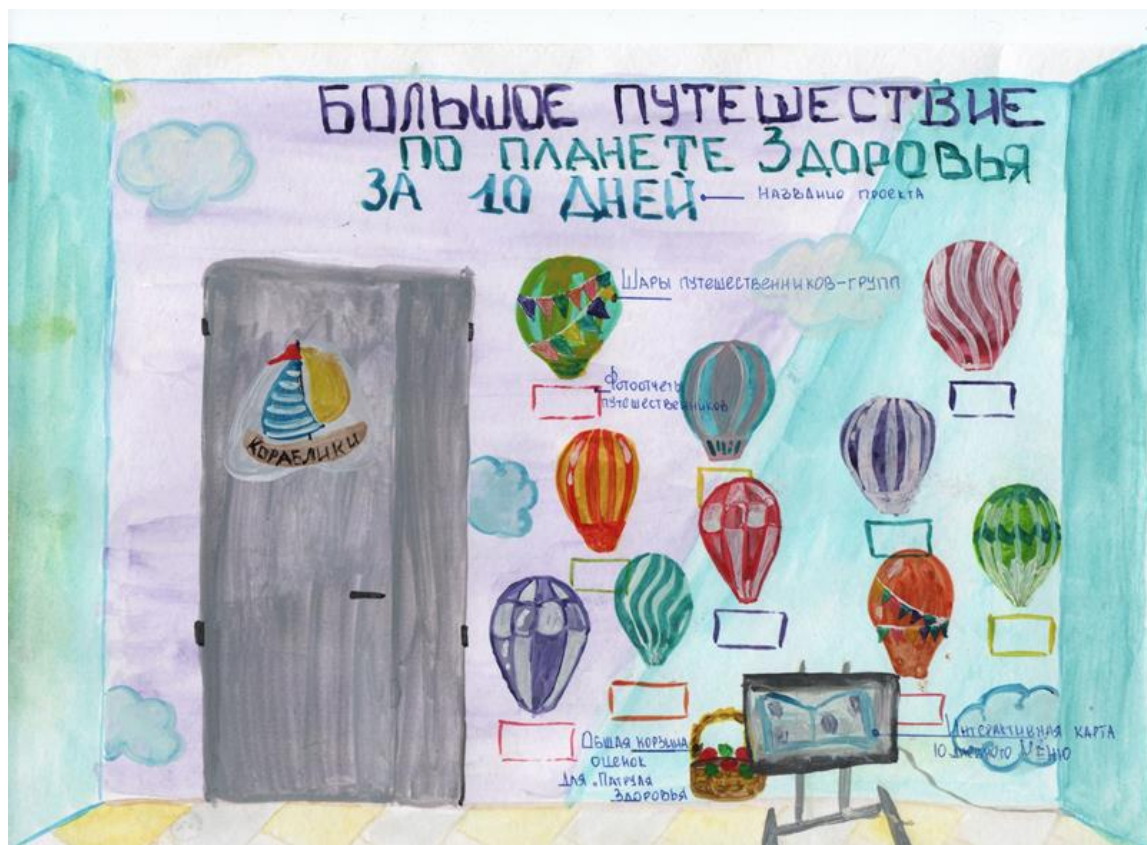 БОЛЬШОЕ ПУТЕШЕСТВИЕ
ПО ПЛАНЕТЕ ЗДОРОВЬЯ
ЗА 10 ДНЕЙ
НАЗВАНИЕ ПРОЕКТА
ШАРЫ ПУТЕШЕСТВЕННИКОВ-ГРУПП
ФОТООТЧЕТЫ
ПУТЕШЕСТВЕННИКОВ
КОРАБЛИКИ
ОБЩАЯ КОРЗИНА
ОЦЕНОК
ДЛЯ „ПАТРУЛЯ
ЗДОРОВЬЯ
ИНТЕРАКТИВНАЯ КАРТА
10 ДНЕВНОГО МЕНЮ